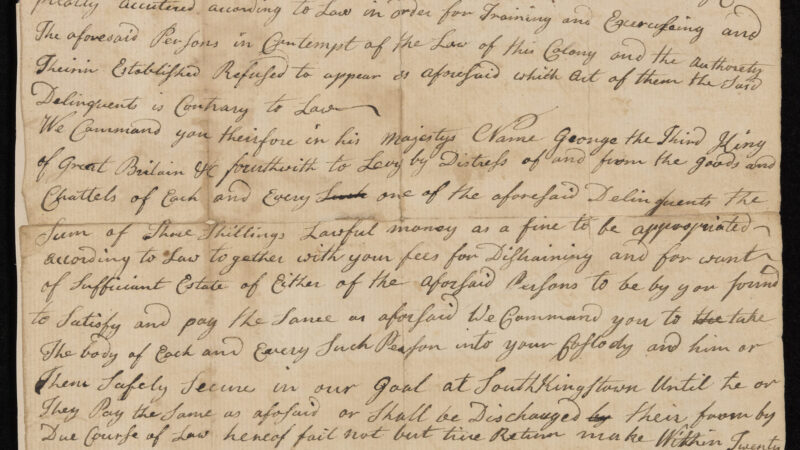 accutered according to Law in order for Training and Exercising and
The aforesaid Persons in Contempt of the Law of this Colony and the Authorety
Theirin Established Refused to appear as aforesaid which act of them the Said
Delinquents is Contrary to Law
We Command you theirfore in his Majestys Name George the Third King
of Great Britain &c fourthwith to Levy by Distress of and from the Goods and
Chattels of Each and Every Such one of the aforesaid Delinquents the
Sum of Three Shillings Lawfull money as a fine to be appropriated
according to Law together with your fees for Distraining and for want
of Sufficient Estate of Either of the aforsaid Persons to be by you found
to Satisfy and pay the Same as aforsaid We Command you to the take
The body of Each and Every Such Person into your Custody and him or
Them Safely Secure in our Goal at South Kingstown Until he or
They Pay the Same as afosaid or Shall be Discharged by their from by
Due Course of Law hereof fail not but true Return make Within Twenty